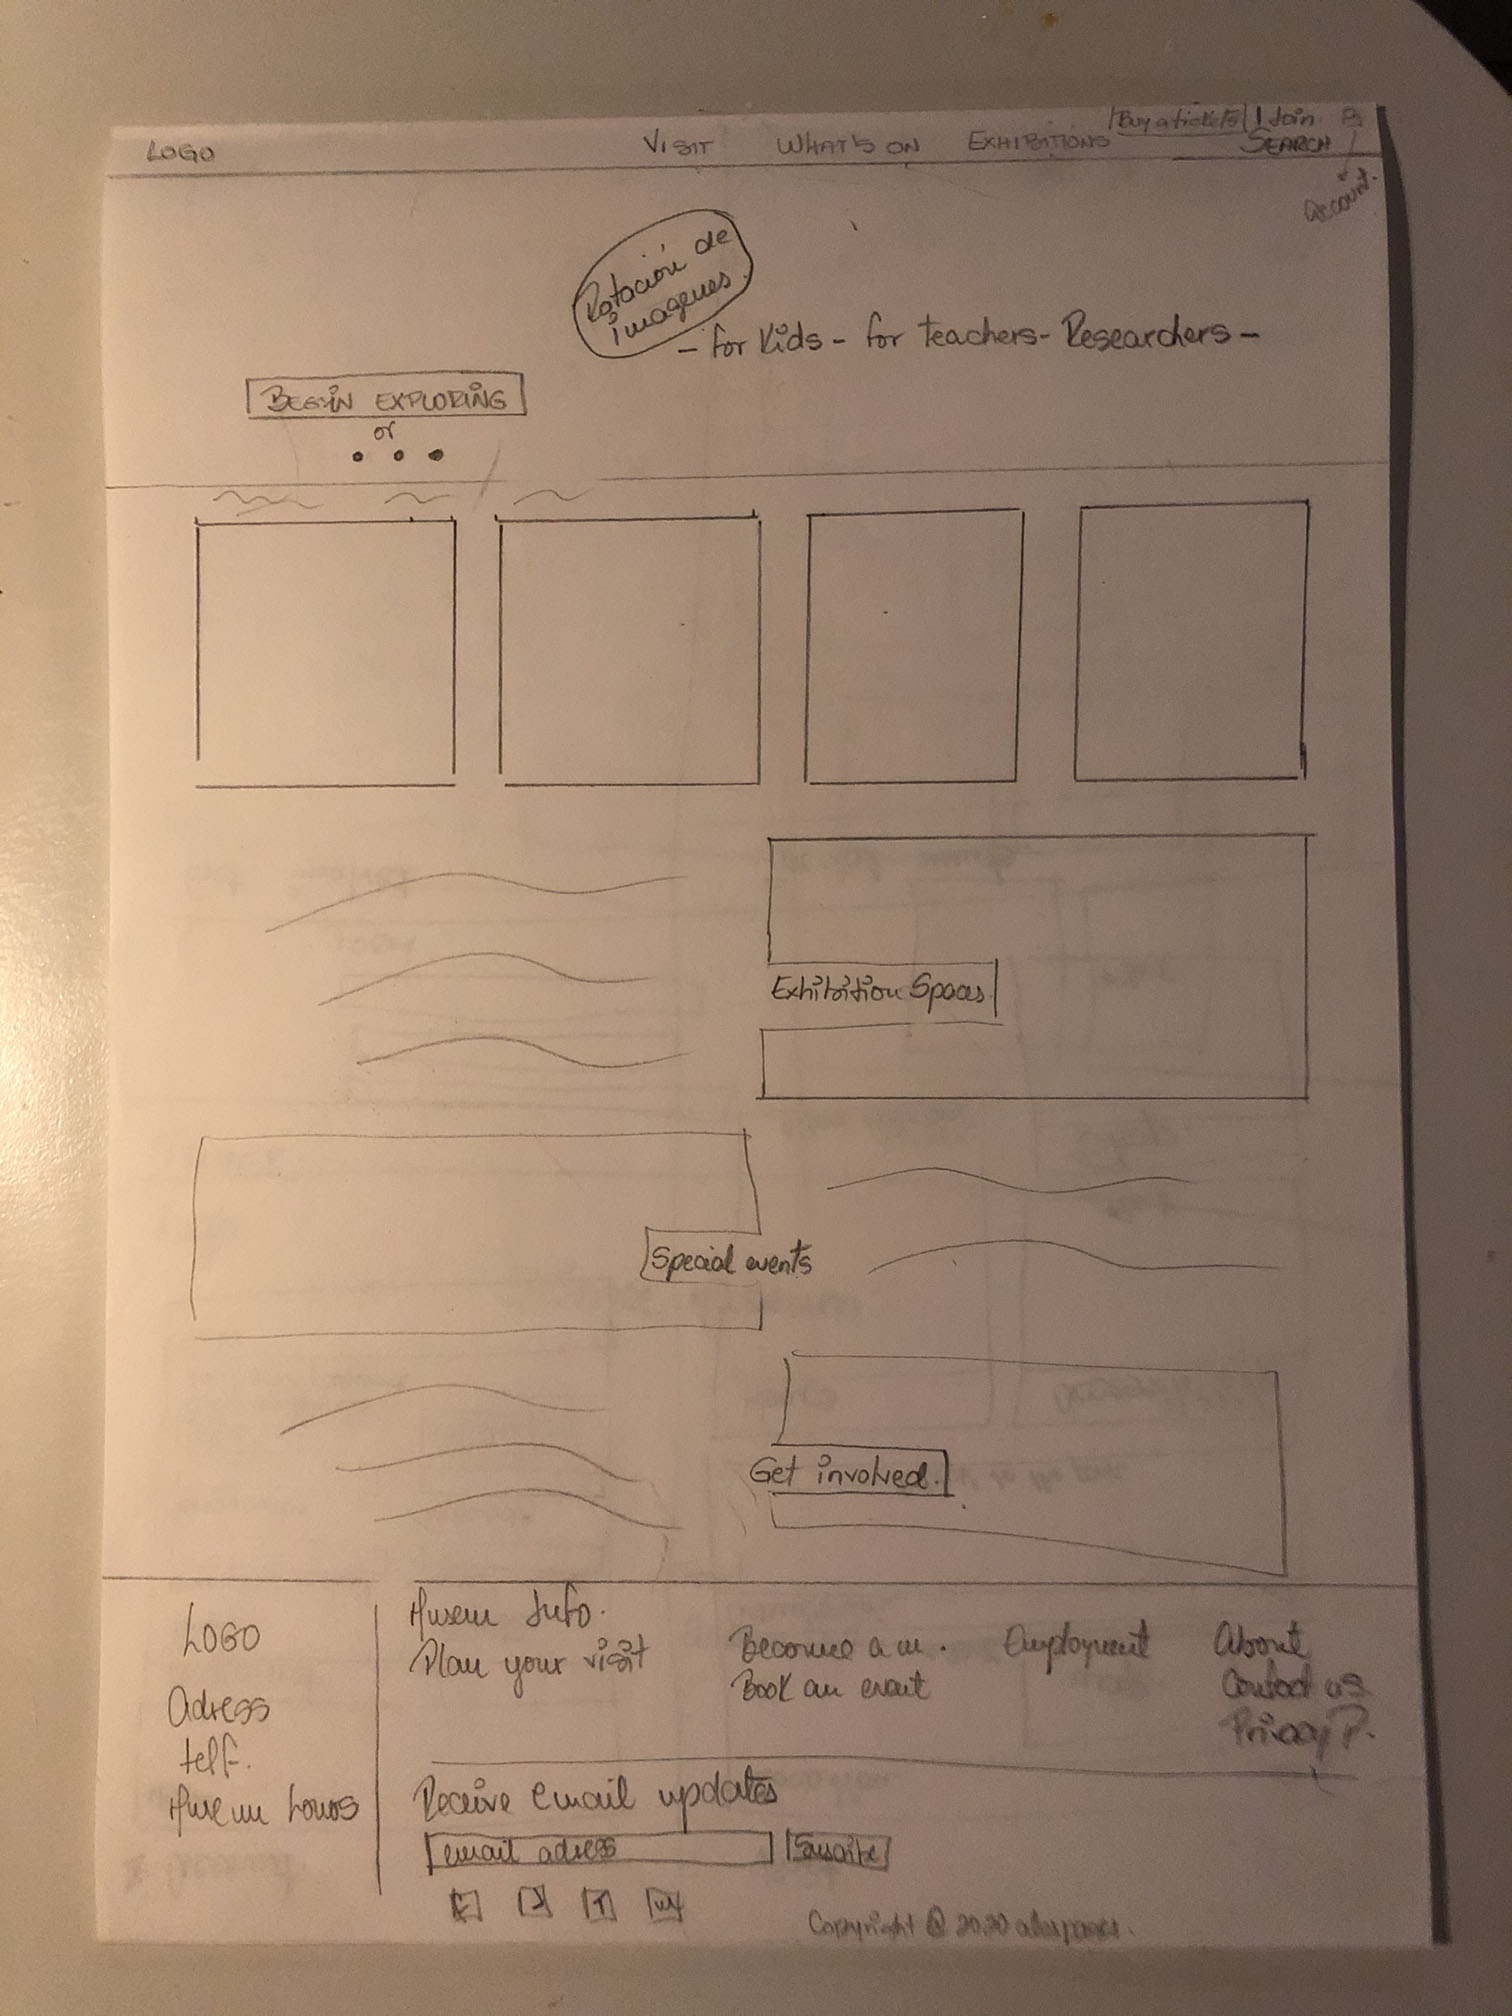 Buy a tickets Join
LOGO VISIT WHAT'S ON EXHIBITIONS SEARCH
account.
Rotación de
imagenes.
- for Kids - for teachers - Researchers -
BEGIN EXPLORING
or
Exhibition Spaces
Special events
Get involved.
LOGO
Adress
telf.
Museum hours
Museum Info.
Plan your visit
Become a m.
Book an event
Employment
About
Contact us
Privacy P.
Receive email updates
email adress
Copyright @ 2020